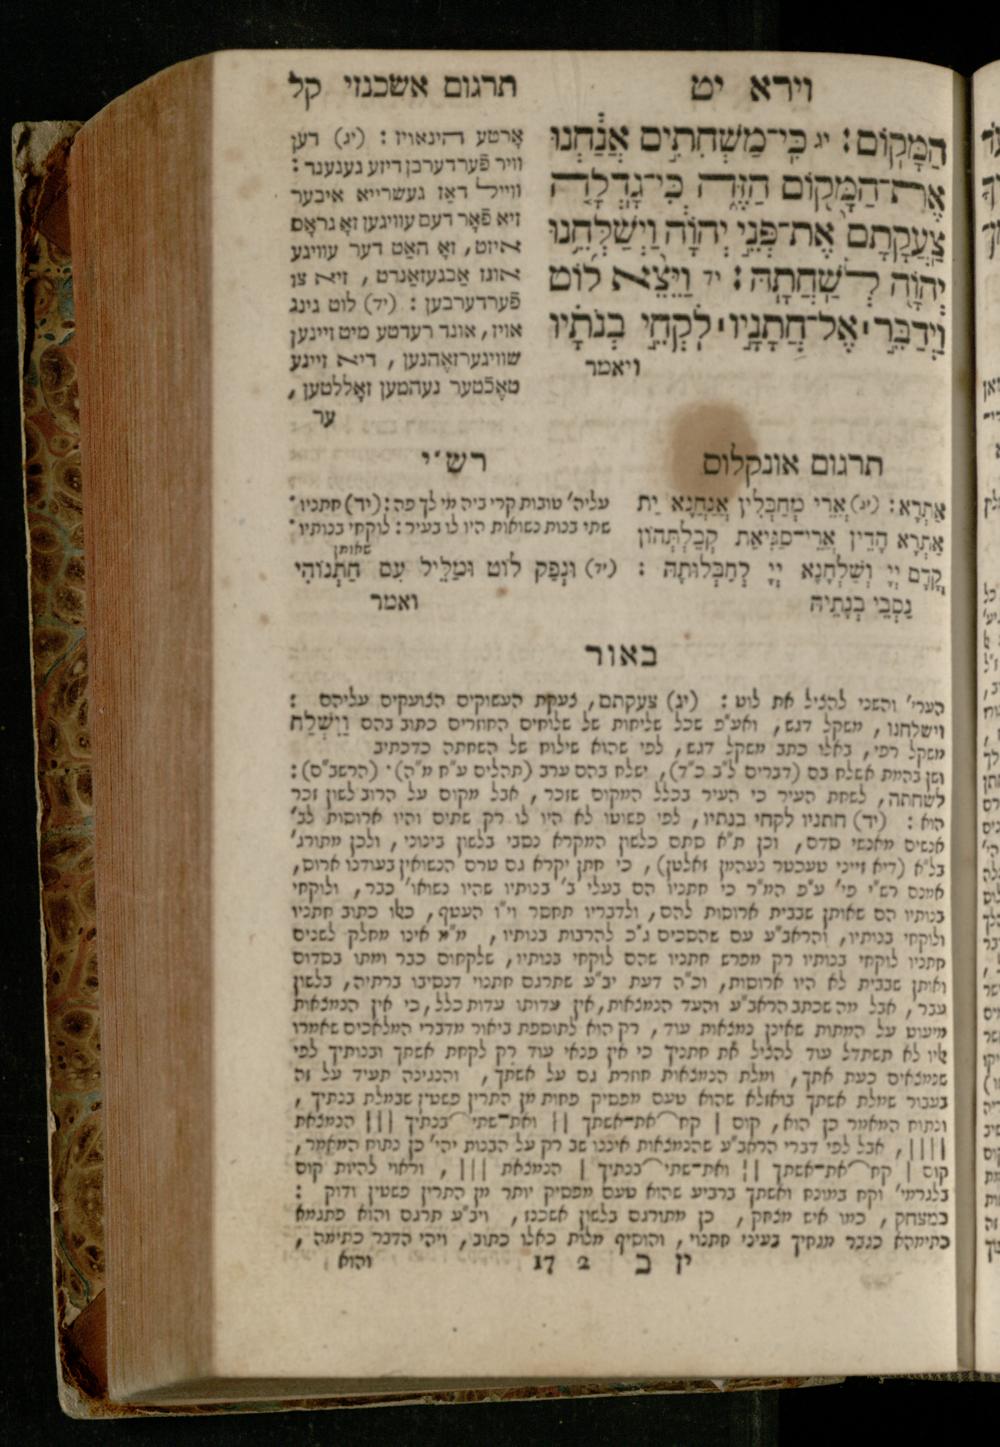 וירא יט
תרגום אשכנזי קל
הַמָּקֽוֹם׃ יג כִּֽי־מַשְׁחִתִ֣ים אֲנַ֔חְנוּ
אֶת־הַמָּק֖וֹם הַזֶּ֑ה כִּֽי־גָֽדְלָ֤ה
צַעֲקָתָם֙ אֶת־פְּנֵ֣י יְהֹוָ֔ה וַיְשַׁלְּחֵ֥נוּ
יְהֹוָ֖ה לְשַׁחֲתָֽהּ׃ יד וַיֵּצֵ֨א לוֹט
וַיְדַבֵּ֣ר ׀ אֶל־חֲתָנָ֣יו ׀ לֹקְחֵ֣י בְנֹתָ֗יו
ויאמר
ארטע הינאויז : (יג) דען
וויר פערדערבן דיזע געגענד :
ווייל דאז געשרייא איבער
זיא פאר דעם עוויגען זא גראס
איזט, זא האט דער עוויגע
אונז אבגעזאנדט , זיא צו
פערדערבען : (יד) לוט גינג
אויז, אונד רעדטע מיט זיינען
שוויגערזאהנען , דיא זיינע
טאכטער נעהמען זאללטען ,
ער
תרגום אונקלוס
אַתְרָא: (יג) אֲרֵי מְחַבְּלִין אֲנַחְנָא יַת
אַתְרָא הָדֵין אֲרֵי־סַגִּיאַת קְבַלְתְּהוֹן
קֳדָם יְיָ וְשַׁלְחָנָא יְיָ לְחַבָּלוּתָהּ : (יד) וּנְפַק לוֹט וּמַלִּיל עִם חַתְנוֹהִי
נַסְבֵי בְנָתֵיהּ
ואמר
רש"י
עליה' טובות קרי ביה מי לך פה: (יד) חתניו
שתי בנות נשואות היו לו בעיר: לוקחי בנותיו
שאותן
באור
הערי' והשני להציל את לוט : (יג) צעקתם, צעקת העשוקים הצועקים עליהם :
וישלחנו, משקל דגש, ואע"פ שכל שליחות של שלוחים החוזרים כתוב בהם וַיִּשְׁלַח
משקל רפי, באלו כתב משקל דגש, לפי שהוא שילוח של השחתה כדכתיב
ושן בהמת אשלח בם (דברים ל"ב כ"ד), ישלח בהם ערב (תהלים ע"ח מ"ה) (הרשב"ם):
לשחתה, לשחת העיר כי העיר בכלל המקום שזכר, אבל מקום על הרוב לשון זכר
הוא : (יד) חתניו לקחי בנתיו, לפי פשוטו לא היו לו רק שתים והיו ארוסות לב'
אנשים מאנשי סדם, וכן ת"א סתם כלשון המקרא נסבי בלשון בינוני, ולכן מתורג'
בל"א (דיא זייני טעכטר נעהמן זאלטן), כי חתן יקרא גם טרם הנשואין בעודנו ארוס,
אמנם רש"י פי' ע"פ המ"ר כי חתניו הם בעלי ב' בנותיו שהיו נשואו' כבר, ולוקחי
בנותיו הם שאותן שבבית ארוסות להם, ולדבריו תחסר וי"ו העטף, כאלו כתוב חתניו
ולוקחי בנותיו, והראב"ע עם שהסכים ג"כ להרבות בנותיו, מ"מ אינו מחלק לשנים
חתניו לוקחי בנותיו רק מפרש חתניו שהם לוקחי בנותיו, שלקחום כבר ומתו בסדום
ואותן שבבית לא היו ארוסות, וכ"ה דעת יב"ע שתרגם חתנוי דנסיבו ברתיה, בלשון
עבר, אבל מה שכתב הראב"ע והעד הנמצאות, אין עדותו עדות כלל, כי אין הנמצאות
מיעוט על המתות שאינן נמצאות עוד, רק הוא לתוספת ביאור מדברי המלאכים שאמרו
אליו לא תשתדל עוד להציל את חתניך כי אין פנאי עוד רק לקחת אשתך ובנותיך לפי
שנמצאים כעת אתך, ומלת הנמצאות חוזרת גם על אשתך, והנגינה תעיד על זה
בעבור שמלת אשתך בואזלא שהוא טעם מפסיק פחות מן התרין פשטין שבמלת בנתיך,
ונתוח המאמר כן הוא, קום | קח את־אשתך || ואת־שתי בנתיך ||| הנמצאת
||||, אבל לפי דברי הראב"ע שהנמצאות איננו שב רק על הבנות יהי' כן נתוח המאמר,
קום | קח את־אשתך || ואת־שתי בנתיך | הנמצאת |||, וראוי להיות קום
בלגרמי' וקח במונח ואשתך ברביע שהוא טעם מפסיק יותר מן התרין פשטין ודוק :
כמצחק, כמו איש מצחק, כן מתורגם בלשון אשכנז, ויב"ע תרגם והוא פתגמא
כתימהא כגבר מגחיך בעיני חתנוי, והוסיף מלות כאלו כתוב, ויהי הדבר כתימה,
יז ב 2 17
והוא